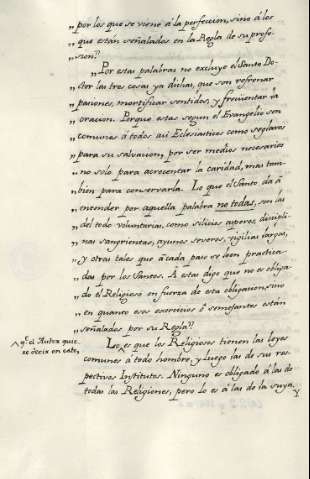 „ por los que se viene á la perfeccion, sino á los
„ que están señalados en la Regla de su profe-
„ sion.”
„ Por estas palabras no excluye el Santo Do-
„ ctor las tres cosas ya dichas, que son refrenar
„ pasiones, mortificar sentidos, y freqüentar la
„ oracion. Porque estas segun el Evangelio son
„ comunes á todos asi Eclesiasticos como seglares
„ para su salvacion, por ser medios necesarios
„ no solo para acrecentar la caridad, mas tam-
„ bien para conservarla. Lo que el Santo dá á
„ entender por aquella palabra no todas, son las
„ del todo voluntarias, como silicios asperos, discipli-
„ nas sangrientas, ayunos severos, vigilias largas,
„ y otras tales que á cada paso se leen practica-
„ das por los Santos. A estas digo que no es obliga-
„ do el Religioso en fuerza de esta obligacion, sino
„ en quanto esos exercicios ó semejantes están
„ señalados por su Regla”
Lo, es que los Religiosos tienen las leyes
^ q.e el Autor quie-
re decir en esto,
comunes á todo hombre, y luego las de sus res-
pectivos Institutos. Ninguno es obligado á las de
todas las Religiones, pero lo es á las de la suya,
y